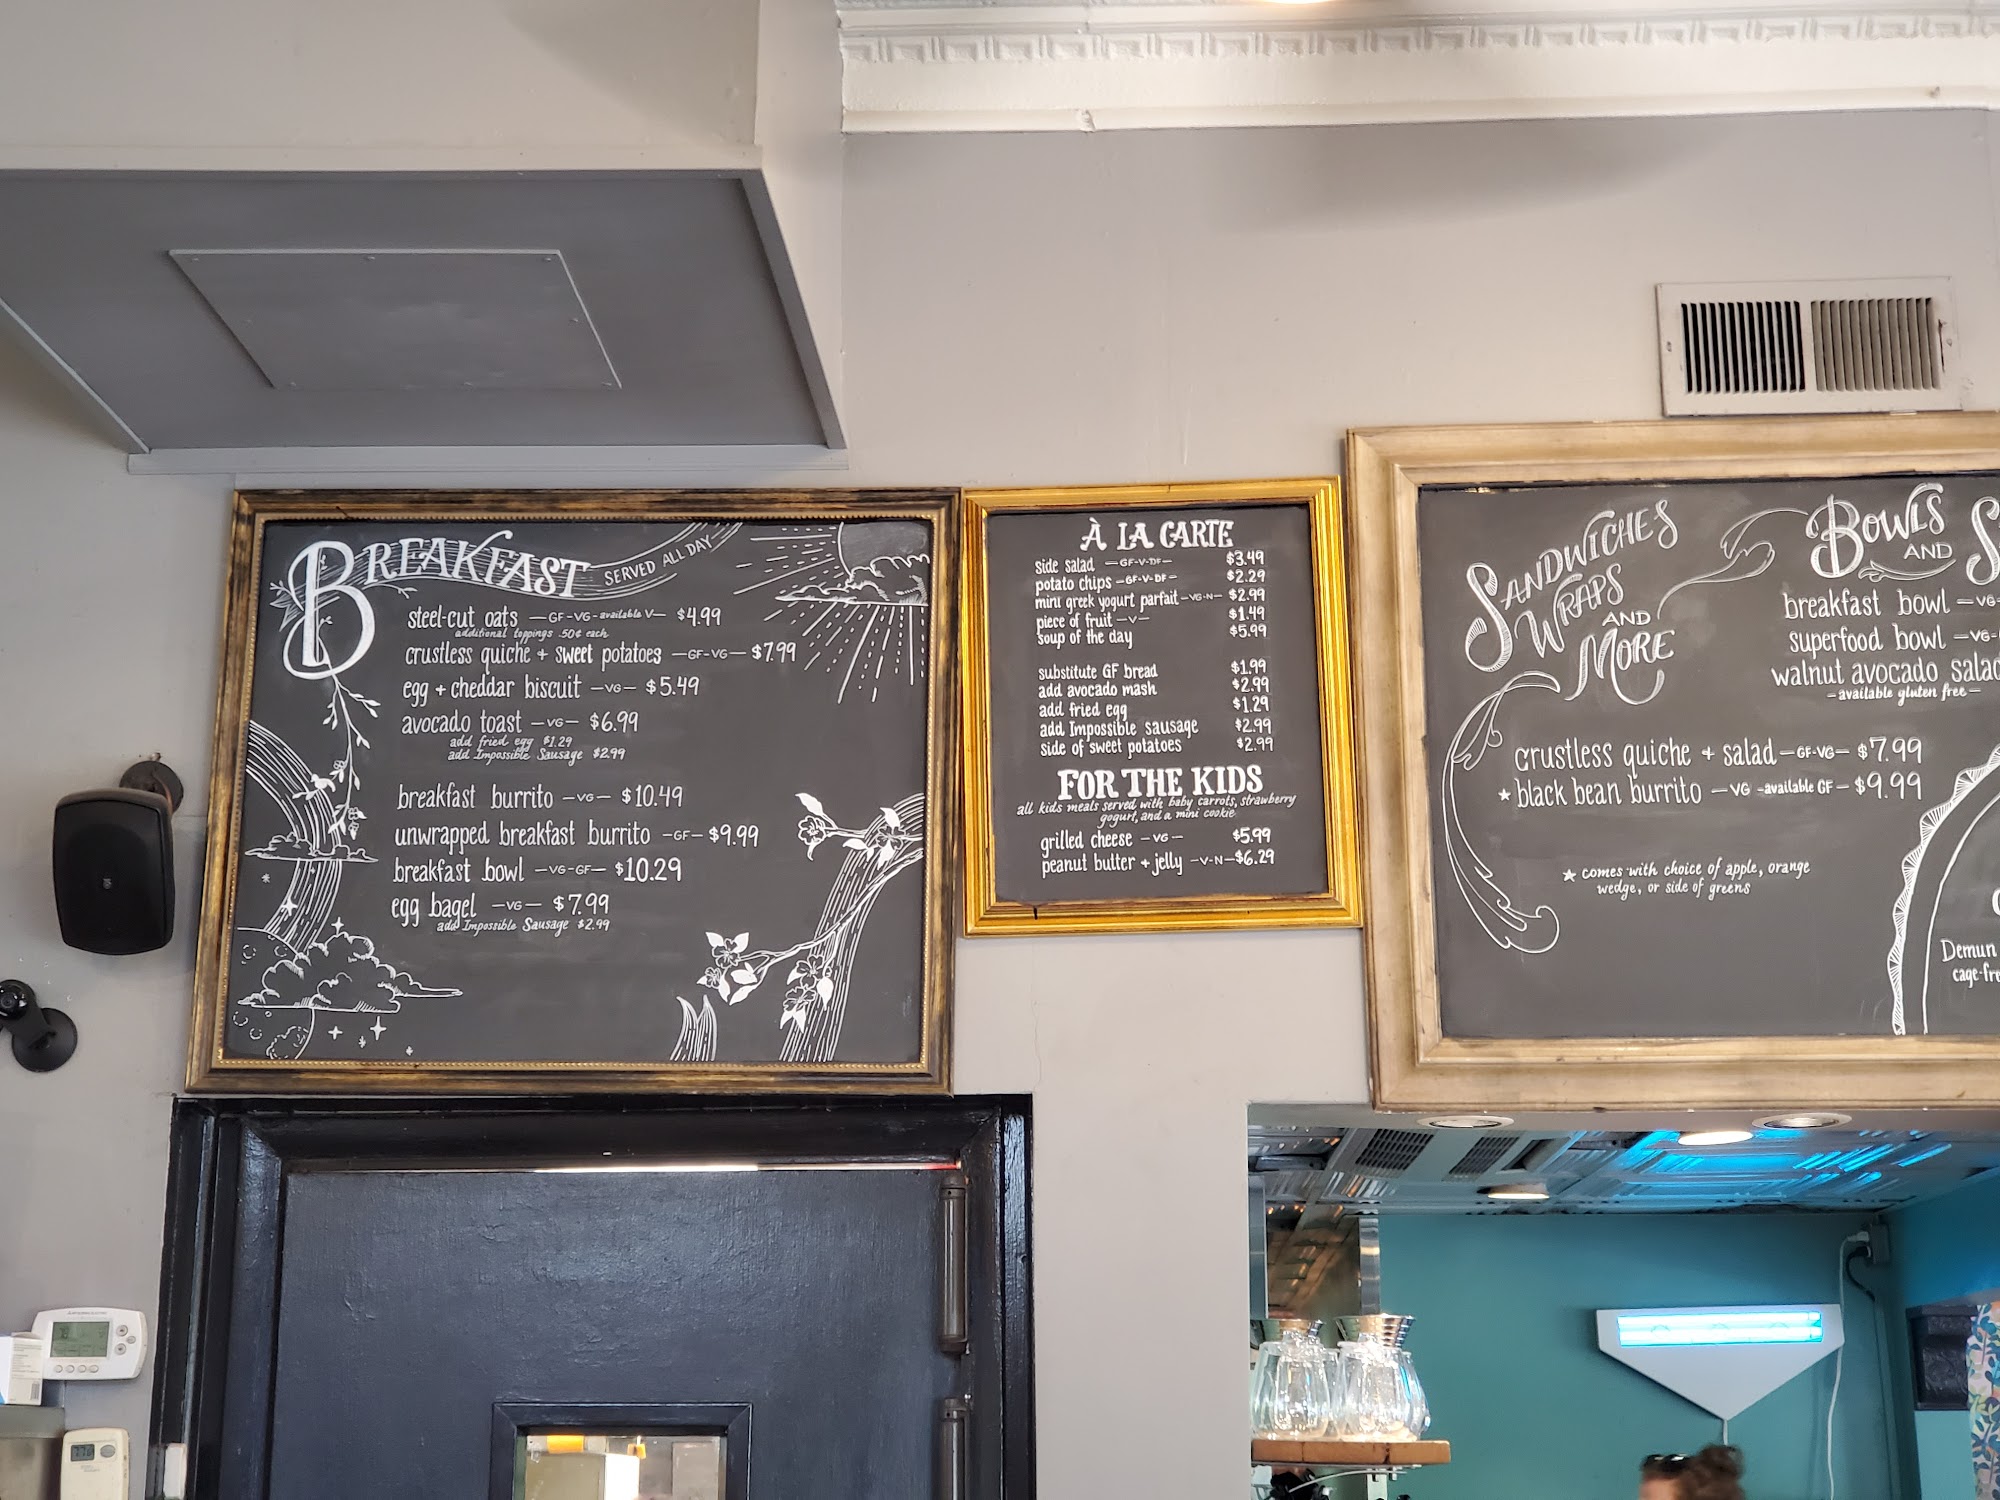 BREAKFAST SERVED ALL DAY
steel-cut oats —GF-VG-available V— $4.99
additional toppings .50¢ each
crustless quiche + sweet potatoes —GF-VG— $7.99
egg + cheddar biscuit —VG— $5.49
avocado toast —VG— $6.99
add fried egg $1.29
add Impossible Sausage $2.99
breakfast burrito —VG— $10.49
unwrapped breakfast burrito —GF— $9.99
breakfast bowl —VG-GF— $10.29
egg bagel —VG— $7.99
add Impossible Sausage $2.99
À LA CARTE
side salad —GF-V-DF— $3.49
potato chips —GF-V-DF— $2.29
mini greek yogurt parfait —VG-N— $2.99
piece of fruit —V— $1.49
soup of the day $5.99
substitute GF bread $1.99
add avocado mash $2.99
add fried egg $1.29
add Impossible sausage $2.99
side of sweet potatoes $2.99
FOR THE KIDS
all kids meals served with baby carrots, strawberry
yogurt, and a mini cookie
grilled cheese —VG— $5.99
peanut butter + jelly —V-N— $6.29
SANDWICHES
WRAPS
AND
MORE
crustless quiche + salad —GF-VG— $7.99
★ black bean burrito —VG -available GF— $9.99
★ comes with choice of apple, orange
wedge, or side of greens
BOWLS
AND S
breakfast bowl —VG-
superfood bowl —VG-
walnut avocado salad
—available gluten free—
Demun
cage-fre